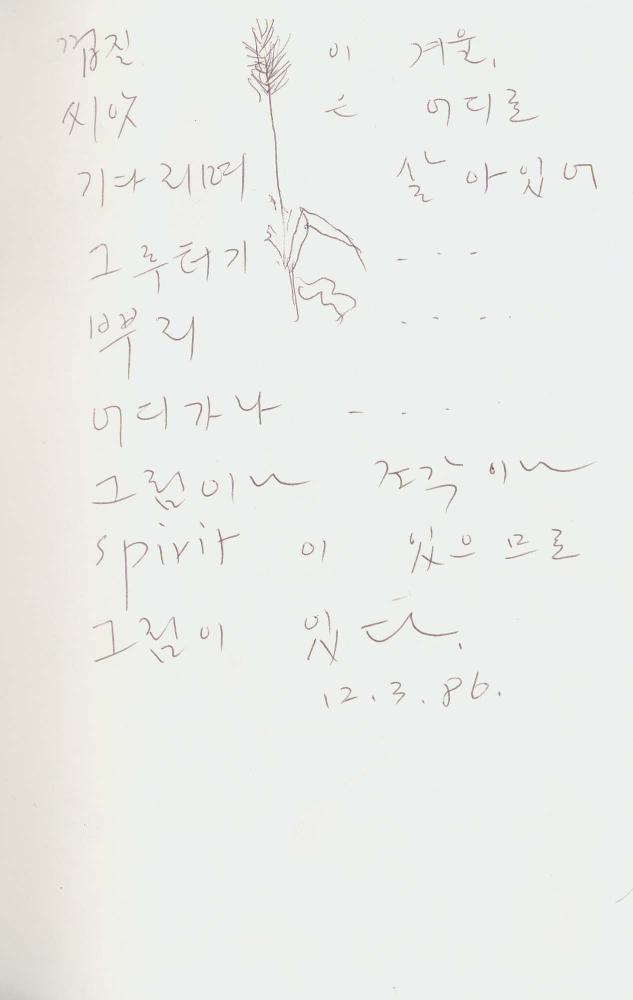 껍질 이 겨울,
씨앗 은 어디로
기다리며 살아있어
그루터기 - - - -
뿌리 - - - -
어디가나 - - - -
그림이나 조각이나
spirit 이 있으므로
그림이 있다.
12.3.86.